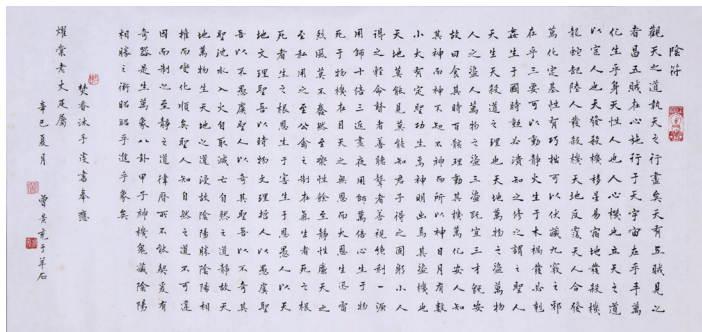 陰符
觀天之道執天之行盡矣天有五賊見之
者昌五賊在心施行于天宇宙在乎手萬
化生乎身天性人也人心機也立天之道
以定人也天發殺機移星易宿地發殺機
龍蛇起陸人發殺機天地反覆天人合發
萬化定基性有巧拙可以伏藏九竅之邪
在乎三要可以動靜火生于木禍發必剋
姦生于國時動必潰知之修之謂之聖人
天生天殺道之理也天地萬物之盜萬物
人之盜人萬物之盜三盜既宜三才既安
故曰食其時百骸理動其機萬化安人知
其神而神不知不神而所以神日月有數
小大有定聖功生焉神明出焉其盜機也
天地莫能見莫能知君子得之固躬小人
得之輕命瞽者善聽聾者善視絕利一源
用師十倍三返晝夜用師萬倍心生于物
死于物機在目天之無恩而大恩生迅雷
烈風莫不蠢然至樂性餘至靜性廉天之
至私用之至公禽之制在氣生者死之根
死者生之根恩生于害害生于恩愚人以天
地文理聖吾以時物文理哲人以愚虞聖
吾以不愚虞聖人以奇其聖吾以不奇其
聖沈水入火自取滅亡自然之道靜故天
地萬物生天地之道浸故陰陽勝陰陽相
推而變化順矣聖人知自然之道不可違
因而制之至靜之道律曆所不能契爰有
奇器是生萬象八卦甲子神機鬼藏陰陽
相勝之術昭昭乎進乎象矣
焚香沐手虔書奉應
燿棠老丈疋屬
辛巳夏月
于羊石